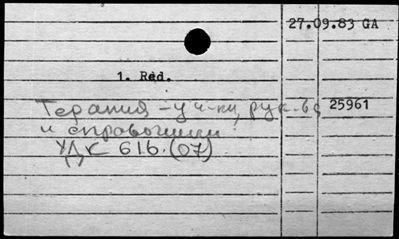 27.09.83 GA
1. Red.
Терапия - уч-ки, рук-ва 25961
и справочники
УДК 616.(07)